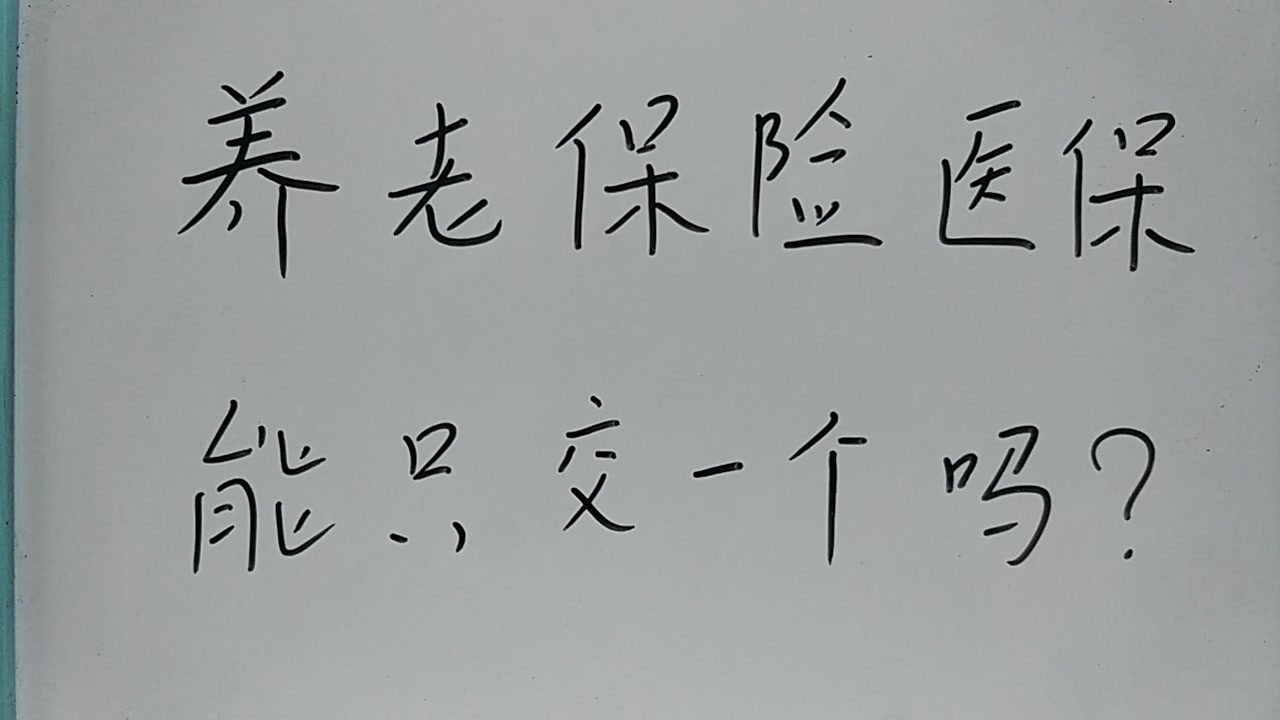 养老保险医保
能只交一个吗?